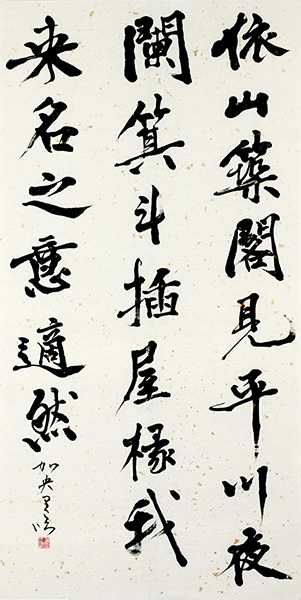 依山築閣見平川夜
闌箕斗插屋椽我
来名之意適然
加央里臨